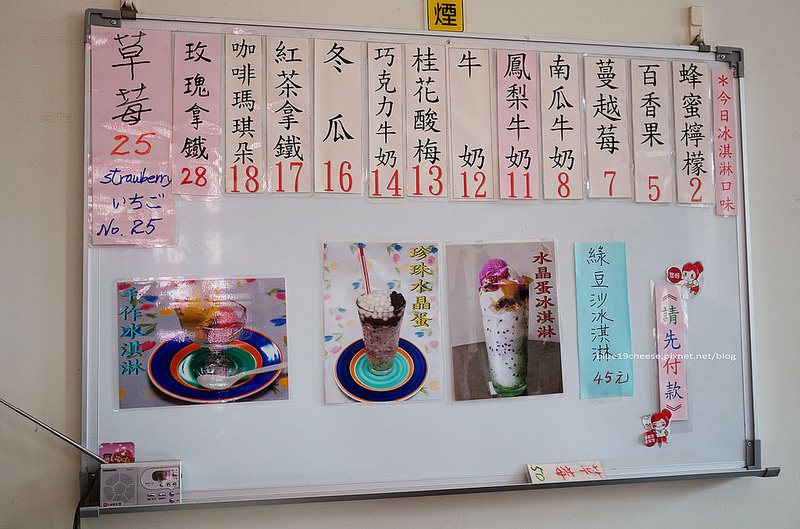 煙
*今日冰淇淋口味
蜂蜜檸檬
2
百香果
5
蔓越莓
7
南瓜牛奶
8
鳳梨牛奶
11
牛奶
12
桂花酸梅
13
巧克力牛奶
14
冬瓜
16
紅茶拿鐵
17
咖啡瑪琪朵
18
玫瑰拿鐵
28
草莓
25
strawberry
いちご
No. 25
手作冰淇淋
珍珠水晶蛋
水晶蛋冰淇淋
綠豆沙冰淇淋
45元
《請先付款》
blue19cheese.pixnet.net/blog
草莓
50